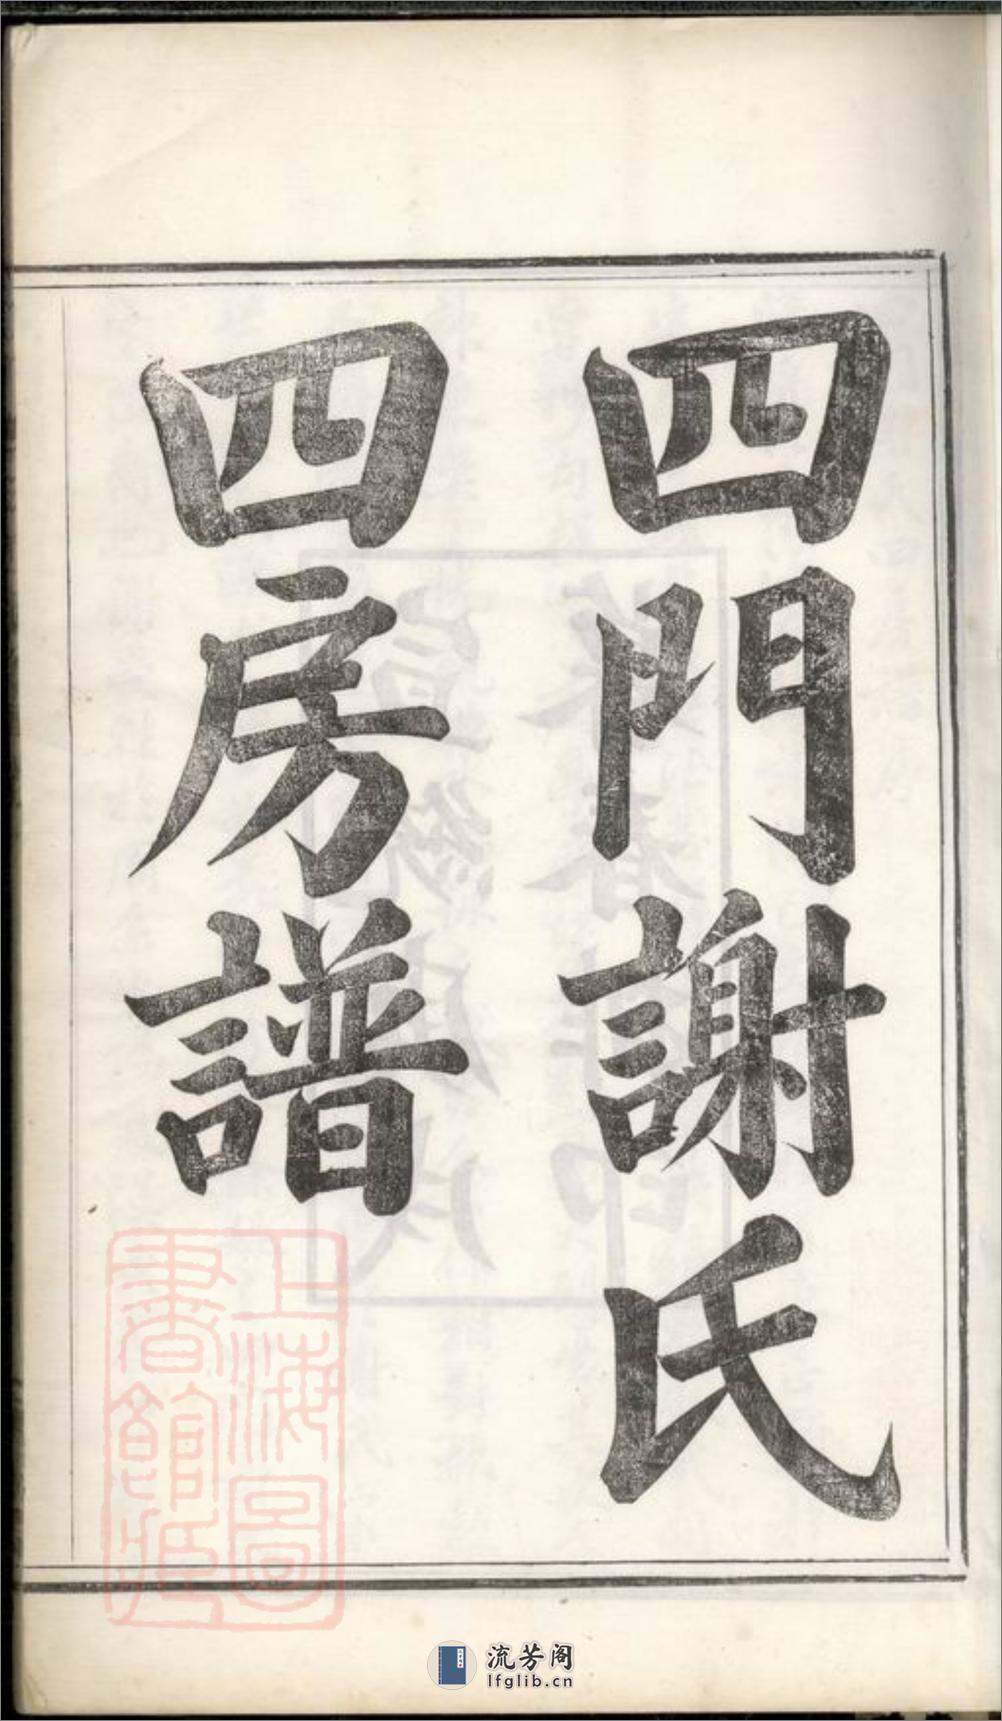 四門謝氏
四房譜
上海圖
書館藏
流芳阁
lfglib.cn